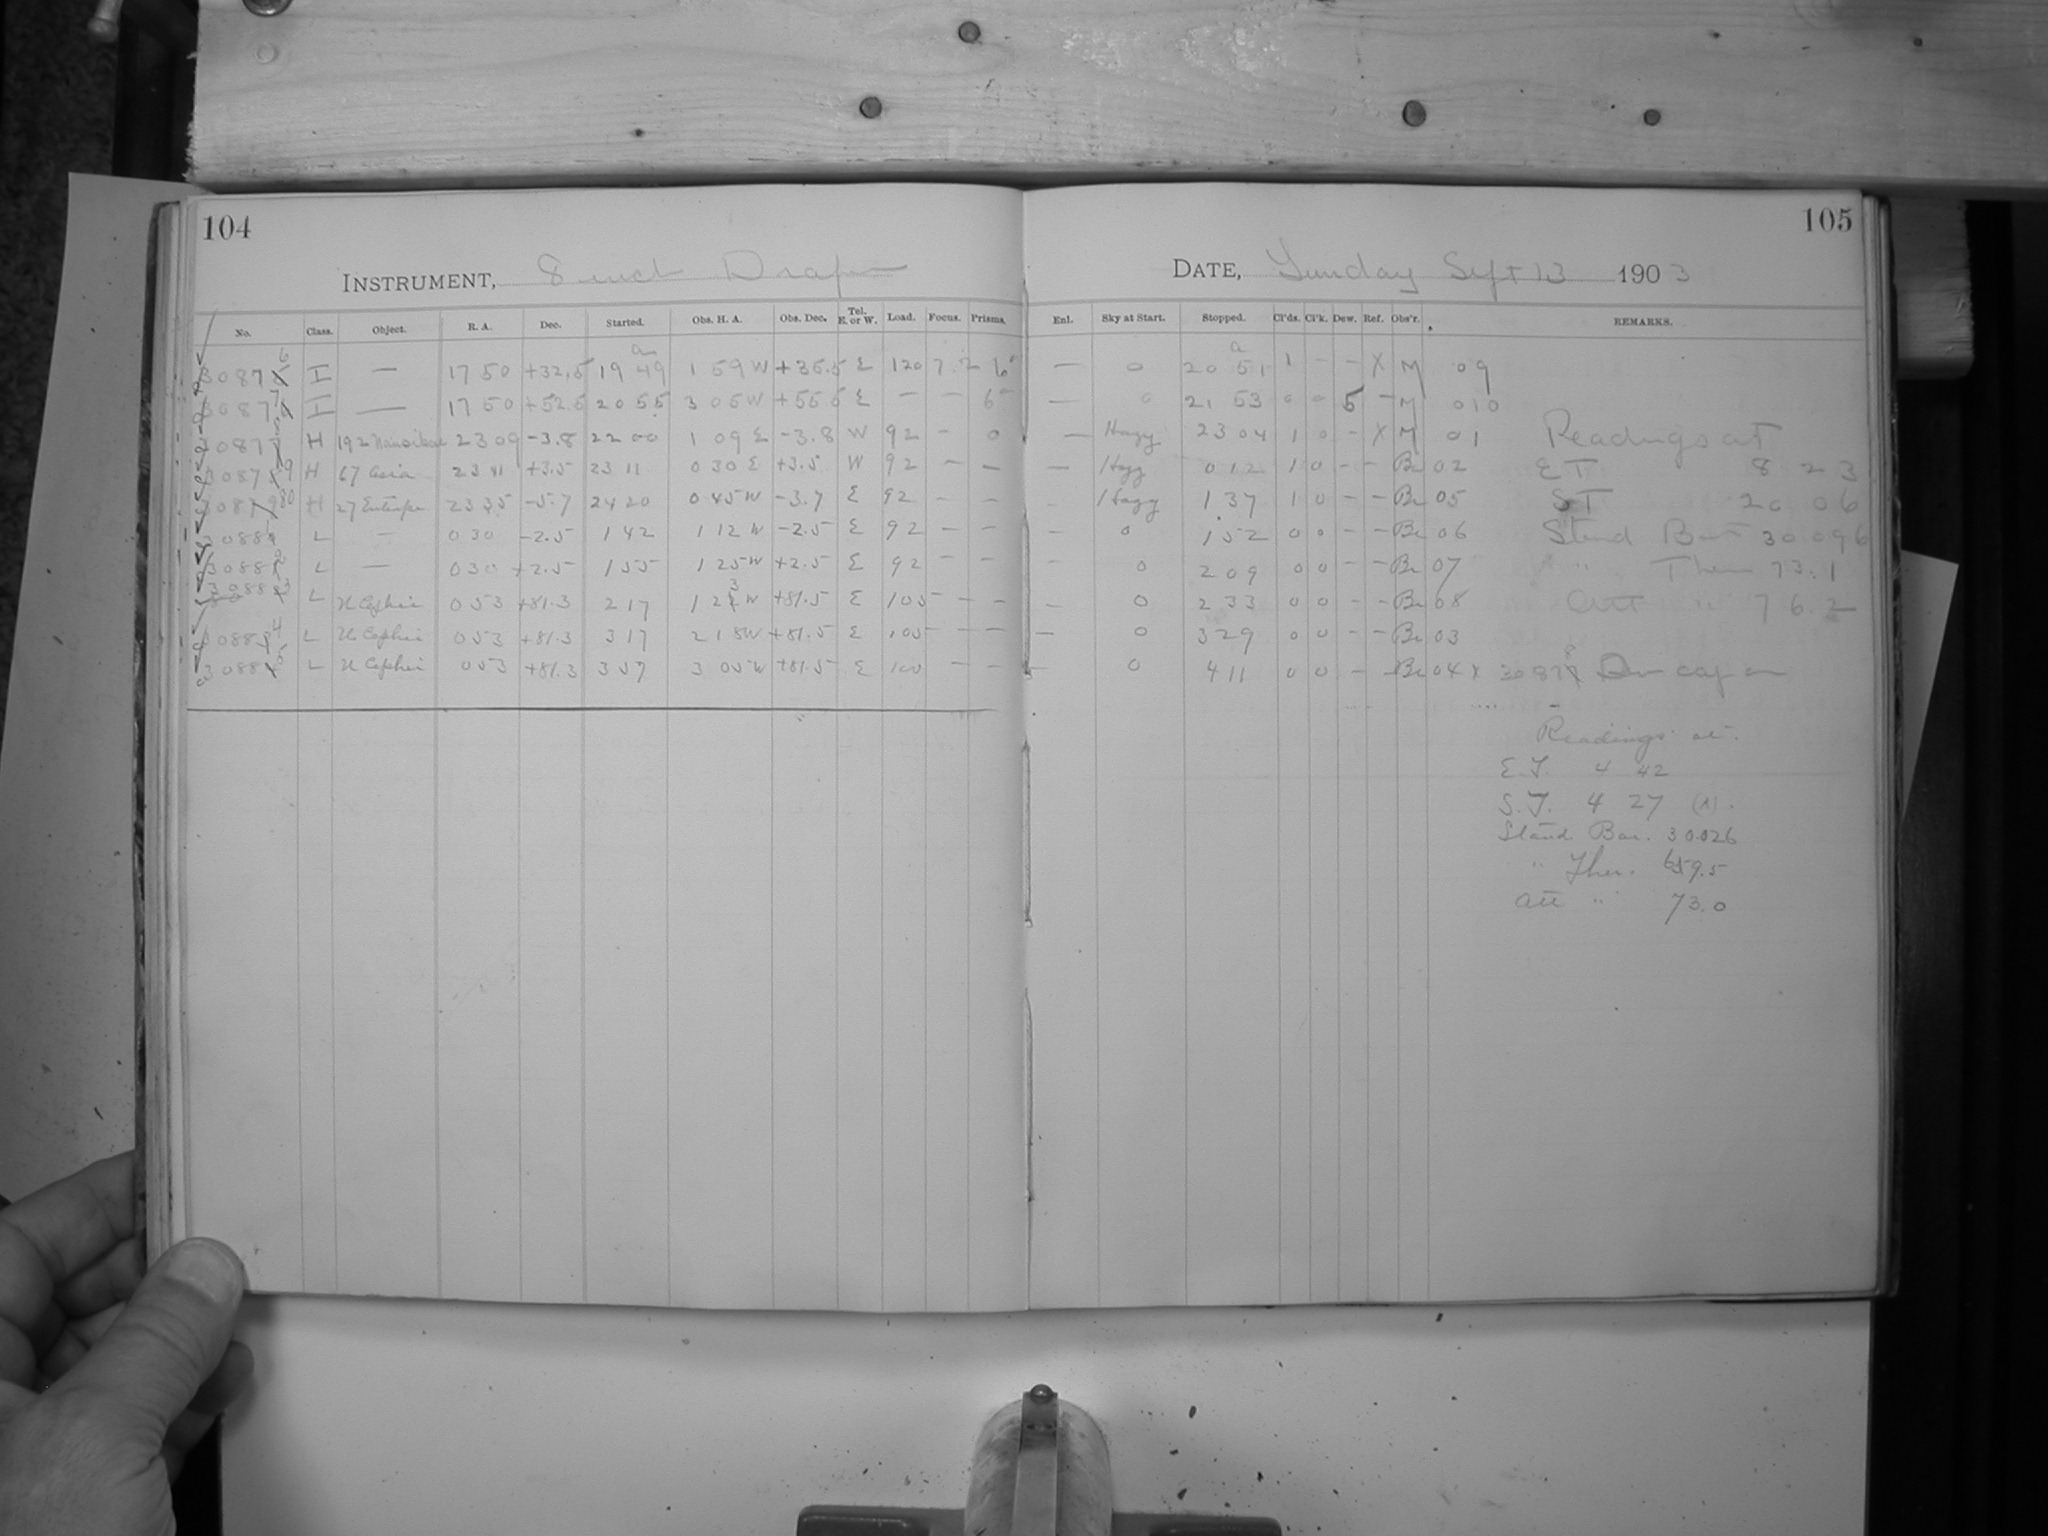 104
105
INSTRUMENT, 8 inch Draper
DATE, Sunday Sept 13 1903
No. Class. Object. R. A. Dec. Started. Obs. H. A. Obs. Dec. Tel. E. or W. Load. Focus. Prisms. Enl. Sky at Start. Stopped. Cl'ds. Cl'k. Dew. Ref. Obs'r. REMARKS.
30876 H — 17 50 +32.5 19 49 1 59 W +35.5 E 120 7.2 — 0 20 51 1 – – X M 09
30877 H — 17 50 +52.5 20 55 3 05 W +55.5 E — — — 0 21 53 0 0 5 – M 010
H 192 Nausikaa 23 09 -3.8 22 00 1 09 E -3.8 W 92 – 0 — Hazy 23 04 1 0 – X M 01 Readings at
30879 H 67 Asia 23 41 +3.5 23 11 0 30 E +3.5 W 92 – – — Hazy 0 12 1 0 – – Br 02 ET 8 23
30880 H 27 Euterpe 23 35 -5.7 24 20 0 45 W E 92 – – – Hazy 1 37 1 0 – – Br 05 ST 20 06
30881 L — 0 30 -2.5 1 42 1 12 W -2.5 E 92 – – – 0 1 52 0 0 – – Br 06 Stand Bar 30.096
30882 L — 0 30 +2.5 1 55 1 25 W +2.5 E 92 – – – 0 2 09 0 0 – – Br 07 " Ther 73.1
30883 L U Cephei 0 53 +81.3 2 17 1 23 W +81.5 E 105 – – – 0 2 33 0 0 – – Br 08 Att " 76.2
30884 L U Cephei 0 53 +81.3 3 17 2 18 W +81.5 E 105 – – — 0 3 29 0 0 – – Br 03
30885 L U Cephei 0 53 +81.3 3 57 3 05 W +81.5 E 105 – – — 0 4 11 0 0 – – Br 04 X 30878 Dew cap on
Readings at.
E.T. 4 42
S.T. 4 27
Stand Bar. 30.026
" Ther. 69.5
Att " 73.0